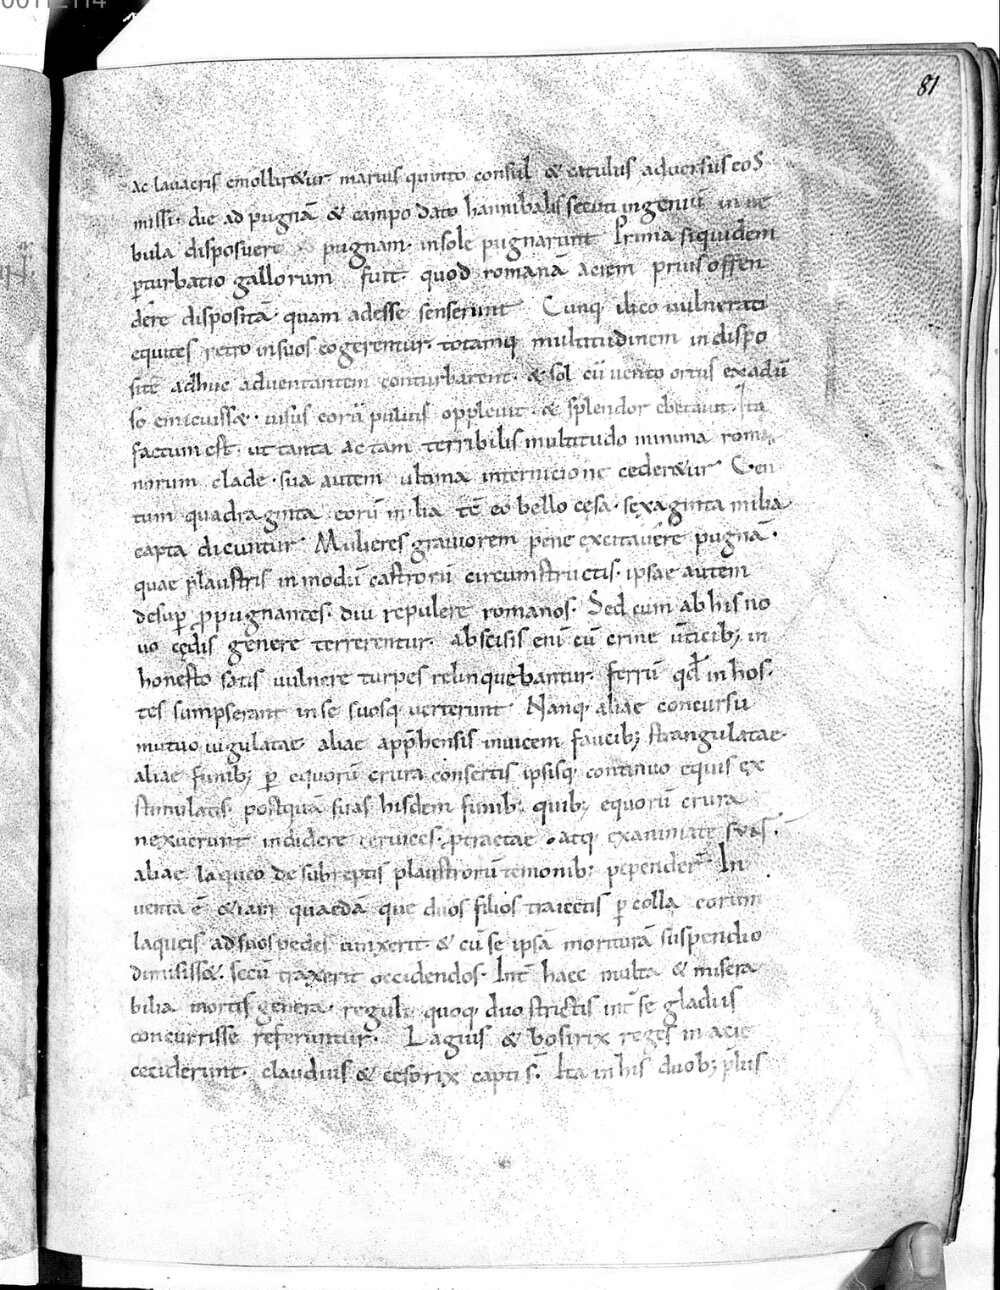 00112114
81
ac lauacris emollir&ur marius quinto consul & catulus aduersus eos
missi· die ad pugnā & campo dato hannibalis secuti ingeniū in ne
bula disposuere pugnam· in sole pugnarunt Prima siquidem
p̱turbatio gallorum fuit· quod romanā aciem prius offen
dere dispositā quam adesse senserunt Cunq; ilico uulnerati
equites retro in suos cogerentur· totamq; multitudinem indispo
site adhuc aduentantem conturbarent· & sol cū uento ortus ex aduū
so emicuiss&· uisus eorū puluis oppleuit· & splendor ebetauit· Ita
factum est· ut tanta ac tam terribilis multitudo minima roma
norum clade· sua autem ultima internicione ceder&ur Cen
tum quadraginta eorū milia tē eo bello cęsa· sexaginta milia
capta dicuntur Mulieres grauiorem pene excitauere pugnā·
quae plaustris in modū castrorū circumstructis· ipsae autem
desup̱ p̱pugnantes· diu repulere romanos· Sed cum ab his no
uo cędis genere terrerentur· abscisis enī cū crine ūticib; in
honesto satis uulnere turpes relinquebantur· ferrū qđ in hos·
tes sumpserant in se suosq; uerterunt· Nanq; aliae concursu
mutuo iugulatae aliae app̄hensis inuicem faucib; strangulatae·
aliae funib; p̱ equorū crura consertis ipsisq; continuo equis ex
stimulatis· postquā suas hisdem funib; quib; equorū crura
nexuerunt indidere ceruices· p̱tractae· atq; exanimate suas·
aliae laqueo de subreptis plaustrorū temonib; pepender̄ In
uenta ē &iam quaedā que duos filios traiectis p̱ colla eorum
laqueis ad suos pedes uinxerit· & cū se ipsā moriturā suspendio
dimisiss&· secū traxerit occidendos· Int̄ haec multa & misera
bilia mortis genera· reguli quoq; duo strictis int̄ se gladiis
concurrisse referuntur· Lagius & bosirix reges in acie
ceciderunt· claudius & cesorix captis· Ita in his duob; p̱liis